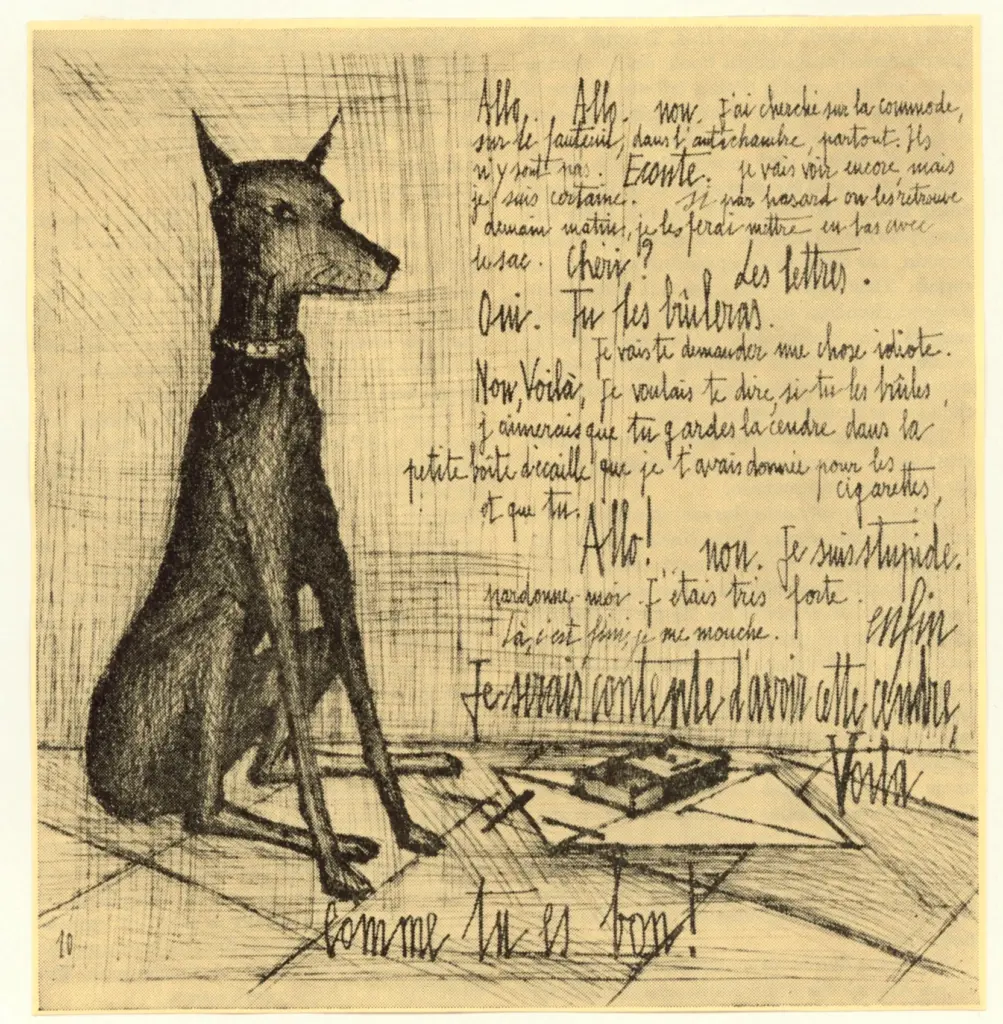 Allo. Allo. non. J'ai cherché sur la commode,
sur le fauteuil, dans l'antichambre, partout. Ils
n'y sont pas. Ecoute. je vais voir encore mais
je suis certaine. Si par hasard on les retrouve
demain matin, je les ferai mettre en bas avec
le sac. Chéri? Les lettres.
Oui. Tu les brûleras.
Je vais te demander une chose idiote.
Non, Voilà, Je voulais te dire, si tu les brûles,
j'aimerais que tu gardes la cendre dans la
petite boîte d'écaille que je t'avais donnée pour les
cigarettes,
et que tu.
Allo! non. Je suis stupide.
pardonne-moi. J'étais très forte.
enfin
Là, c'est fini, je me mouche.
Je serais contente d'avoir cette cendre,
Voilà.
Comme tu es bon!
10